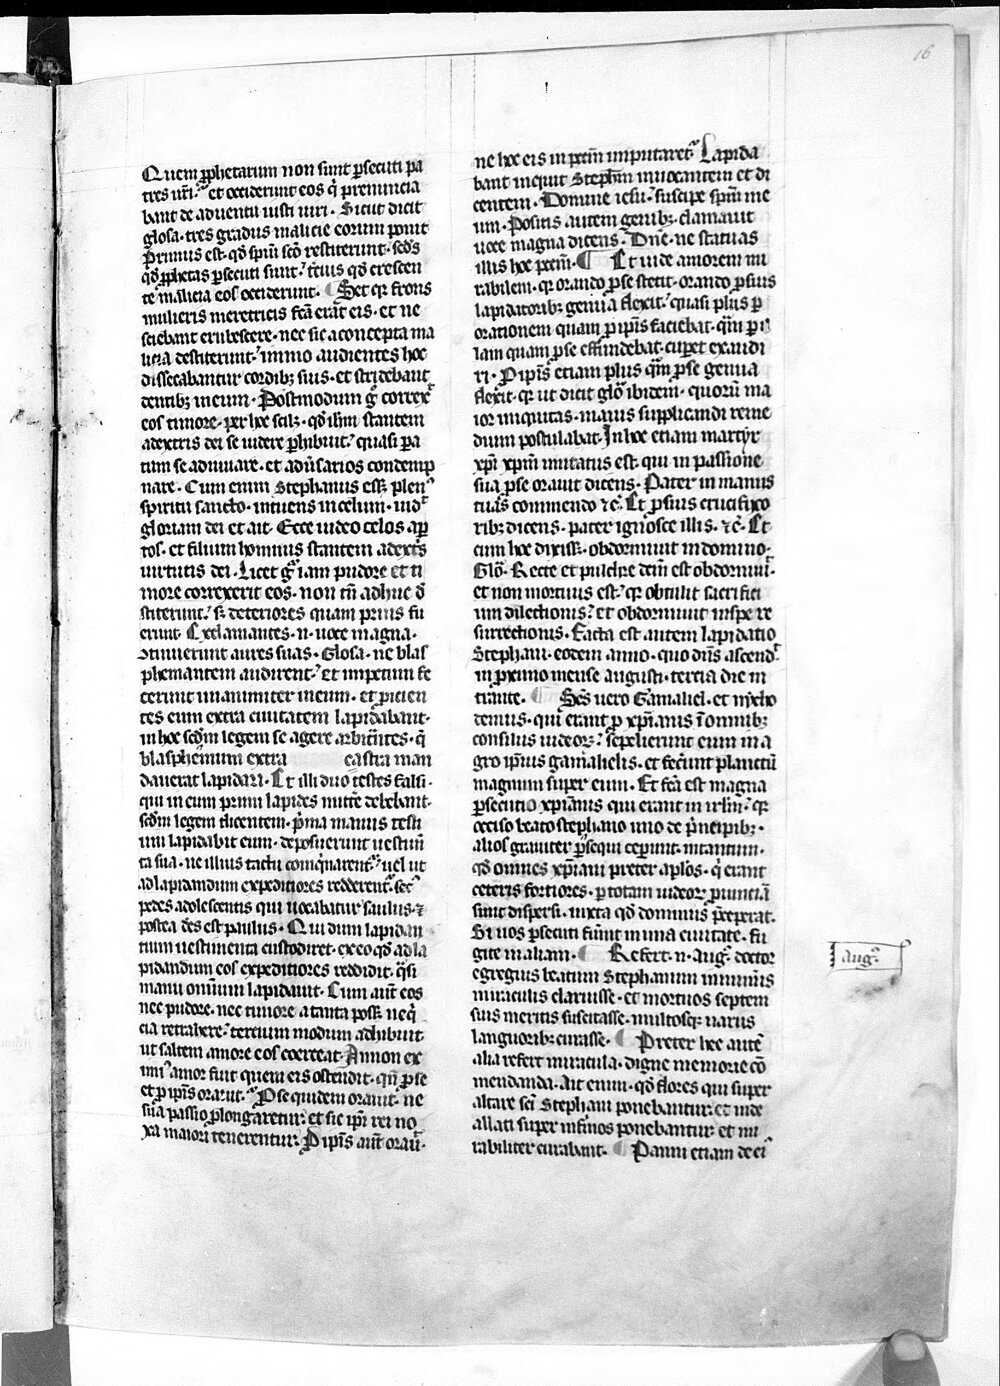 16
Quem ꝓphetarum non sunt ꝑsecuti pa
tres ur̄i. et occiderunt eos q̇ prenuncia
bant de aduentu iusti uiri. Sicut dicit
glosa. tres gradus malicie eorum ponit
Primus est. qd̄ sp̄m sc̄o restiterunt. scds
qd̄ ꝓphetas ꝑsecuti sunt. t̄cius qd̄ crescen
te malicia eos occiderunt. Set qꝛ frons
mulieris meretricis fc̄a erat eis. et ne
sciebant erubescere. nec sic a concepta ma
licia destiterunt. immo audientes hoc
dissecabantur cordibꝫ suis. et stridebant
dentibꝫ in eum. Postmodum g̊ correx͛
eos timore. per hoc scilꝫ. qd̄ ih̄m stantem
a dextris dei se uidere ꝑhibuit. quasi pa
ratum se adiuuare. et adu͛sarios condemp
nare. Cum enim Stephanus eēt plen⁹
spiritu sancto. intuens in celum. uid͛
gloriam dei et ait. Ecce uideo celos aꝑ
tos. et filium hominis stantem a dext͛s
uirtutis dei. Licet g̊ iam pudore et ti
more correxerit eos. non tn̄ adhuc d̄
stiterunt. sꝫ deteriores quam prius fu
erunt. Exclamantes .n. uoce magna.
9tinuerunt aures suas. Glosa. ne blas
phemantem audirent. et impetum fe
cerunt unanimiter in eum. et ꝓicien
tes eum extra ciuitatem lapidabant.
in hoc scd̄m legem se agere arbit̄ntes. q̄
blasphemum extra castra man
dauerat lapidari. Et illi duo testes falsi.
qui in eum primi lapides mitt͛e debebant.
scd̄m legem dicentem. p̄ma manus testi
um lapidabit eum. deposuerunt uestim̄
ta sua. ne illius tactu coinq̇narent᷑. uel ut
ad lapidandum expeditiores redderent᷑. sec⁹
pedes adolescentis qui uocabatur saulus. ⁊
postea dc̄s est paulus. Qui dum lapidan
tium uestimenta custodiret. ex eo qd̄ ad la
pidandum eos expeditiores reddidit. q̄si
manu omnium lapidauit. Cum aut̄ eos
nec pudore. nec timore a tanta posset neq̇
cia retrahere. tercium modum adhibuit
ut saltem amore eos coerceat. Annon ex
imi⁹ amor fuit quem eis ostendit. qn̄ ꝓ se
et ꝓ ip̄is orauit. Pro se quidem orauit. ne
sua passio ꝓlongaretur. et sic ip̄i rei no
xa maiori tenerentur. Pro ip̄is aut̄ orau͛.
ne hoc eis in pcc̄m imputaret᷑. Lapida
bant inquit Steph̄m inuocantem et di
centem. Domine iesu. suscipe sp̄m me
um. Positis autem genibꝫ. clamauit
uoce magna dicens. Dn̄e. ne statuas
illis hoc pcc̄m. Et uide amorem mi
rabilem. qꝛ orando ꝓ se stetit. orando ꝓ suis
lapidatoribꝫ genua flexit. quasi plus ꝓ
orationem quam ꝓ ip̄is faciebat. qm̄ ꝓ il
lam quam ꝓ se effundebat. cuperet exaudi
ri. Pro ip̄is etiam plus qm̄ ꝓ se genua
flexit. qꝛ ut dicit glo͛ ibidem. quorum ma
ior iniquitas. maius supplicandi reme
dium postulabat. In hoc etiam martyr
xp̄i xp̄m imitatus est. qui in passione
sua ꝓ se orauit dicens. Pater in manus
tuas commendo ⁊c̄. Et ꝓ suis crucifixo
ribꝫ dicens. pater ignosce illis. ⁊c̄. Et
cum hoc dixisset. obdormiuit in domino.
Glo͛. Recte et pulchre dc̄m est obdormiuit.
et non mortuus est. qꝛ obtulit sacrifici
um dilectionis. et obdormiuit in spe re
surrectionis. Facta est autem lapidatio
Stephani. eodem anno. quo dn̄s ascend͛
in ꝓximo mense augusti. tercia die in
trante. Sc̄s uero Gamaliel. et nycho
demus. qui erant ꝓ xp̄ianis ī omnibꝫ
consiliis iudeoꝝ. sepelierunt eum in a
gro ip̄ius gamalielis. et fecerunt planctum
magnum super eum. Et fc̄a est magna
ꝑsecutio xp̄ianis qui erant in irl̄m. qꝛ
occiso beato stephano uno de p̄ncipibꝫ.
alios grauiter ꝑsequi ceperunt. in tantum.
qd̄ omnes xp̄iani preter apl̄os. q̇ erant
ceteris fortiores. ꝑ totam iudeoꝝ ꝓuinciā
sunt dispersi. iuxta qd̄ dominus p̄ceperat.
Si uos ꝑsecuti fu͛int in una ciuitate. fu
gite in aliam. Refert .n. aug⁹. doctor
egregius beatum Stephanum innum͛is
miraculis claruisse. et mortuos septem
suis meritis suscitasse. multosqꝫ uariis
languoribꝫ curasse. Preter hec autē
alia refert miracula. digne memorie cō
mendanda. Ait enim. qd̄ flores qui super
altare sc̄i Stephani ponebantur. et inde
allati super infirmos ponebantur. et mi
rabiliter curabant. Panni etiam de ei⁹
aug⁹.